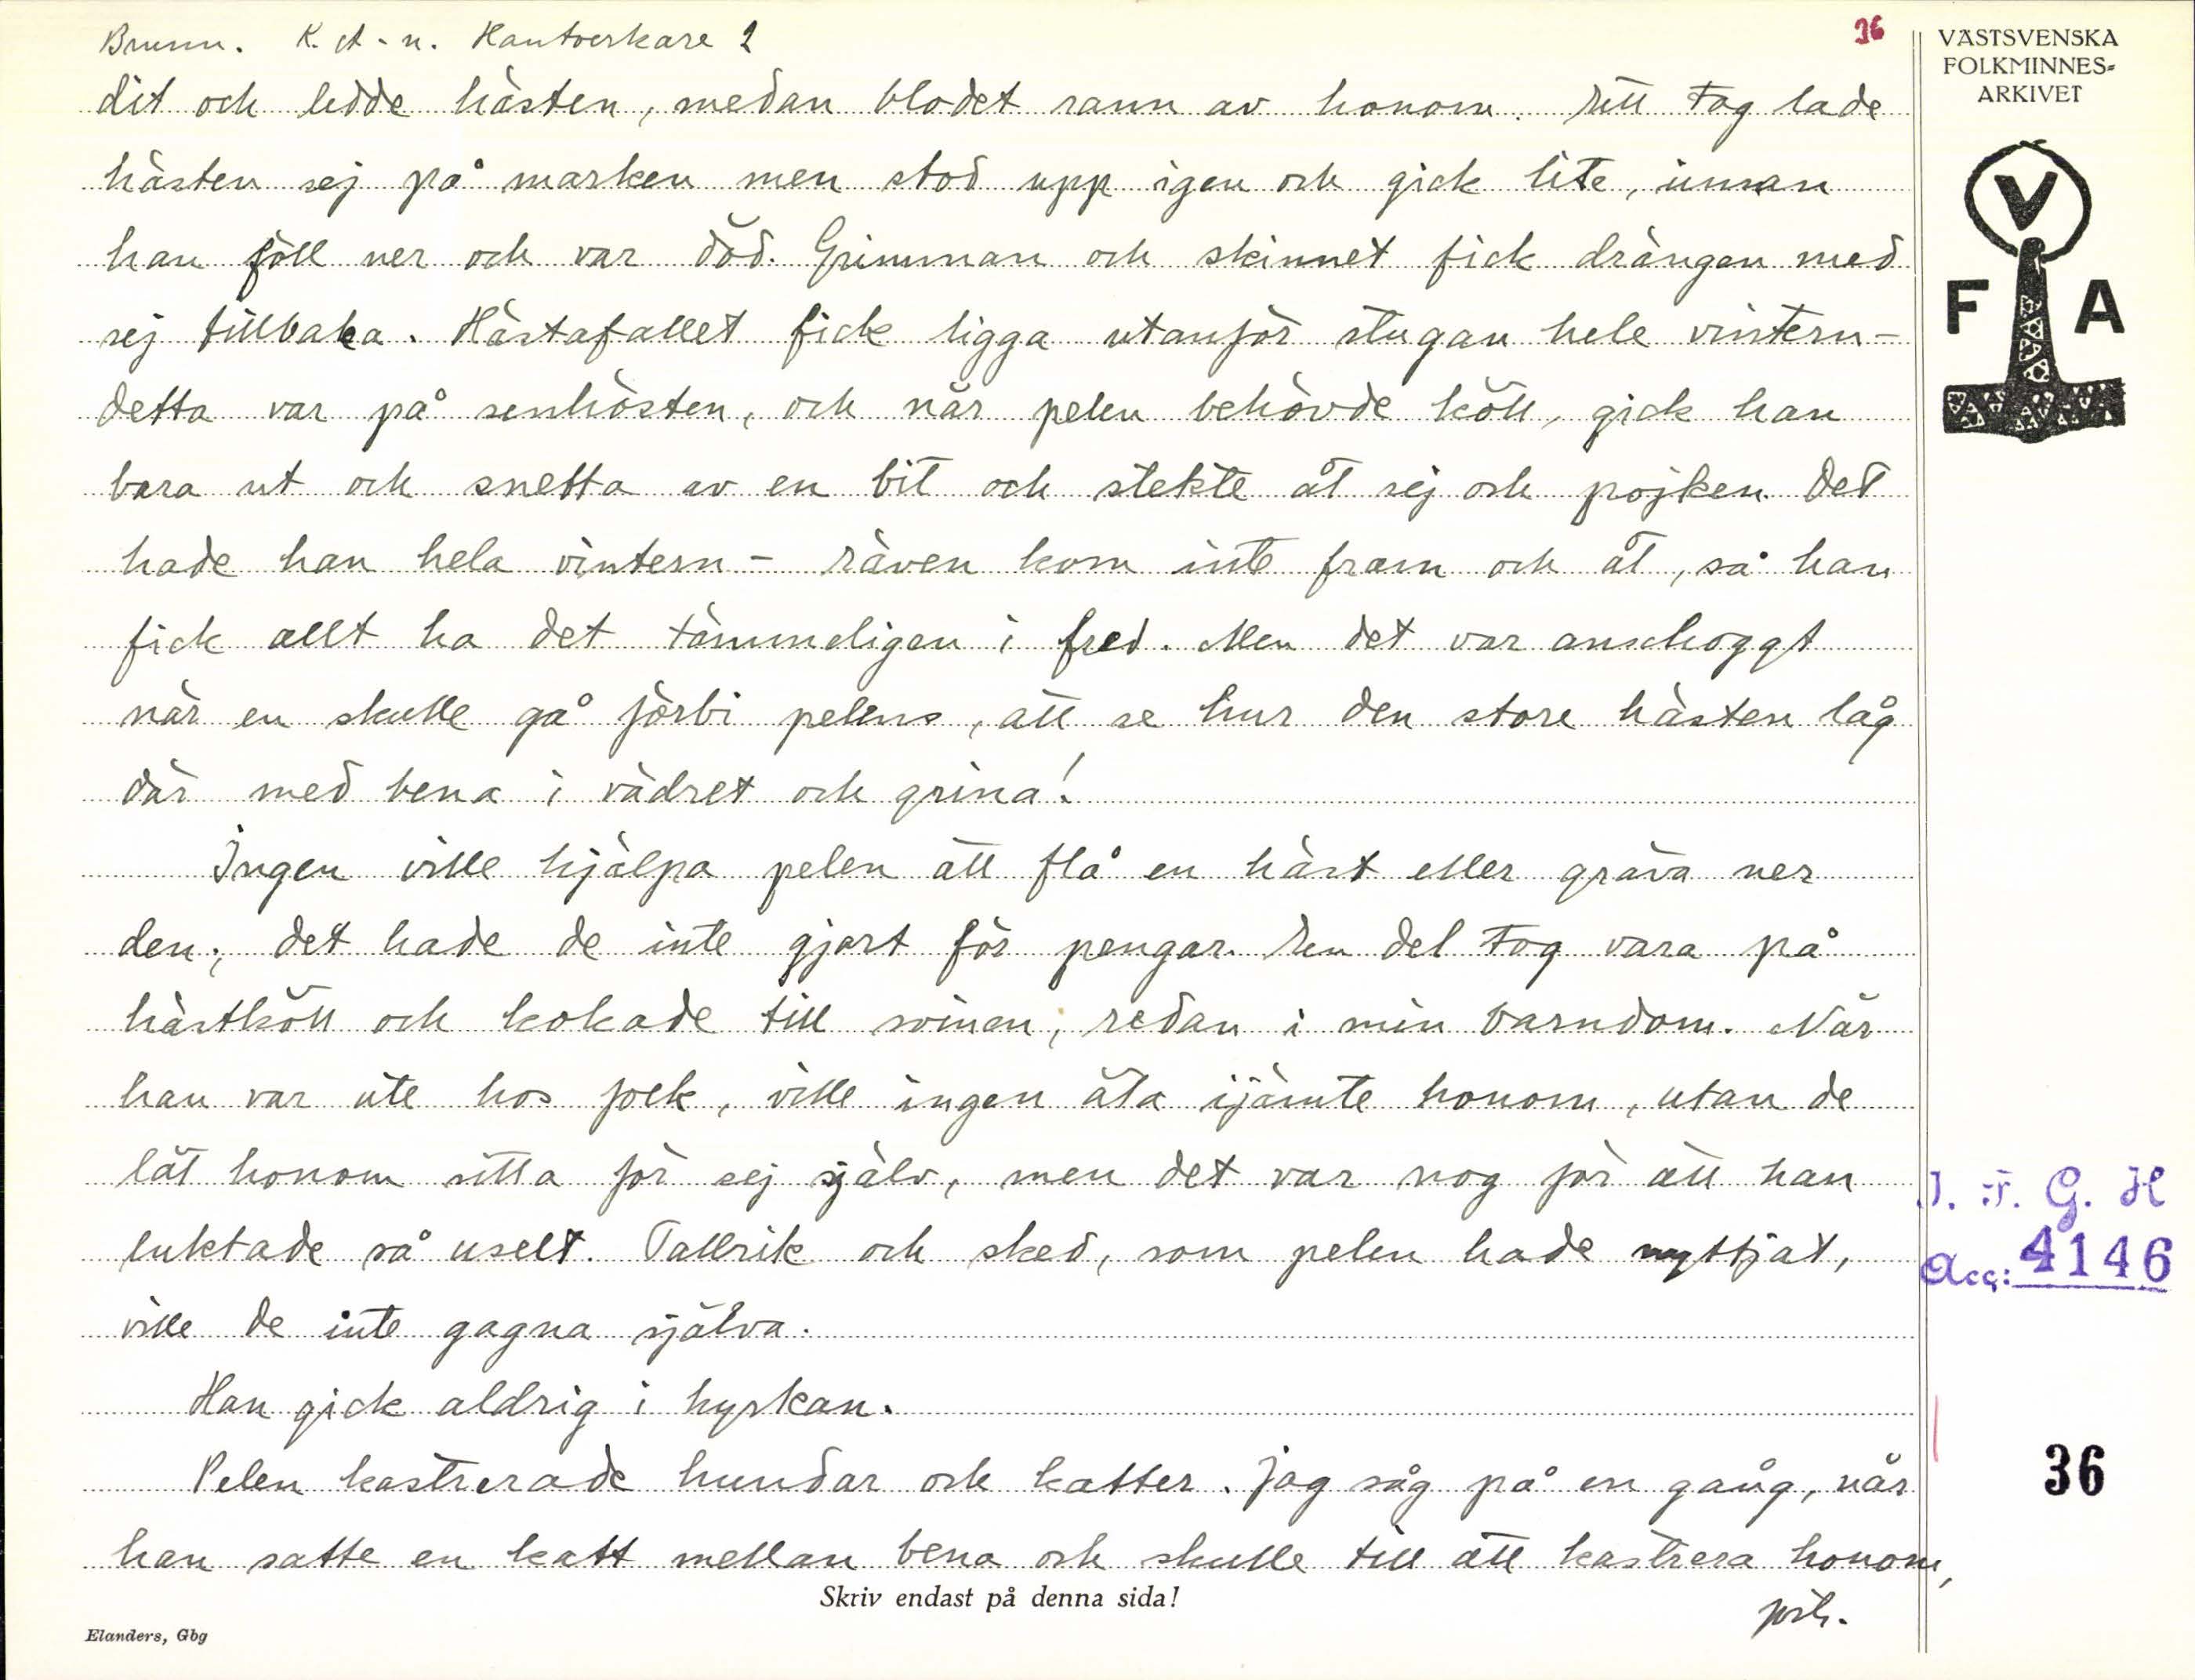 Brunn. K. A-n. Hantverkare 2
36
VÄSTSVENSKA
FOLKMINNES-
ARKIVET
V
F A
dit och ledde hästen, medan blodet rann av honom. Ett tag lade
hästen sej på marken men stod upp igen och gick lite, innan
han föll ner och var död. Grimman och skinnet fick drängen med
sej tillbaka. Hästafallet fick ligga utanför stugan hele vintern -
detta var på senhösten, och när pelen behövde kött, gick han
bara ut och snetta av en bit och stekte åt sej och pojken. Det
hade han hela vintern - räven kom inte fram och åt, så han
fick allt ha det tämmeligen i fred. Men det var anschoggt
när en skulle gå förbi pelens, att se hur den store hästen låg
där med bena i vädret och grina!
Ingen ville hjälpa pelen att flå en häst eller gräva ner
den; det hade de inte gjort för pengar. En del tog vara på
hästkött och kokade till svinen, redan i min barndom. När
han var ute hos folk, ville ingen äta ijämte honom, utan de
lät honom sitta för sej själv, men det var nog för att han
luktade så uselt. Tallrik och sked, som pelen hade nyttjat,
ville de inte gagna själva.
Han gick aldrig i kyrkan.
Pelen kastrerade hundar och katter. Jag såg på en gång, när
han satte en katt mellan bena och skulle till att kastrera honom,
forts.
I. F. G. H
Acc: 4146
36
Skriv endast på denna sida!
Elanders, Gbg